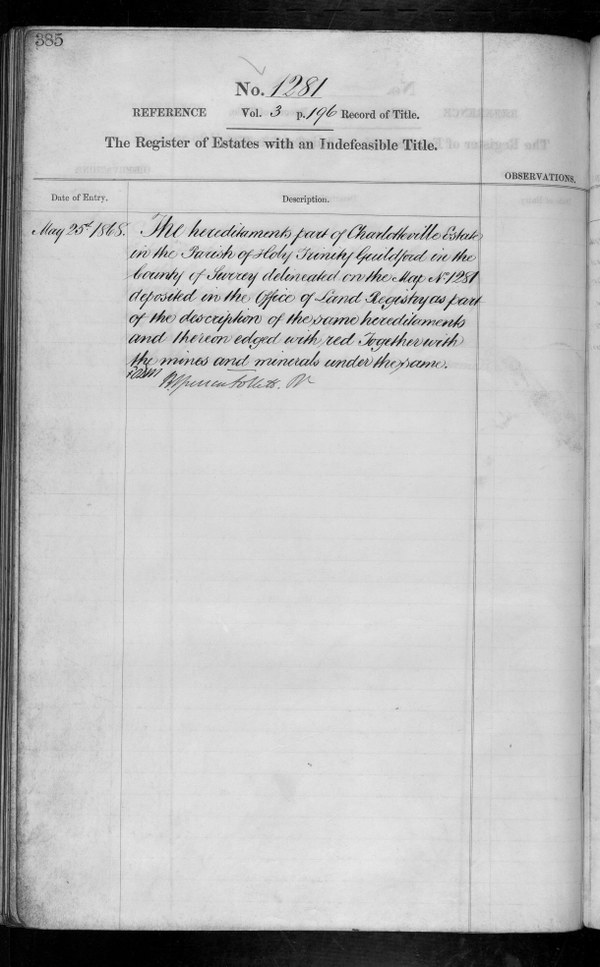 385
No. 1281
REFERENCE Vol. 3 p. 196 Record of Title.
The Register of Estates with an Indefeasible Title.
OBSERVATIONS.
Date of Entry.
Description.
May 25th 1868.
The hereditaments part of Charlotteville Estate
in the Parish of Holy Trinity Guildford in the
County of Surrey delineated on the Map No. 1281
deposited in the Office of Land Registry as part
of the description of the same hereditaments
and thereon edged with red Together with
the mines and minerals under the same.
Follett